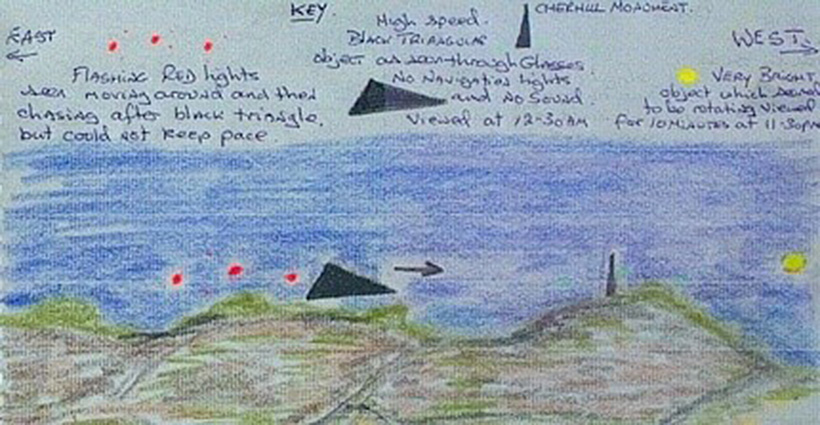 KEY
EAST
FLASHING RED lights
seen moving around and then
chasing after black triangle,
but could not keep pace.
High speed.
BLACK TRIANGULAR
object as seen through Glasses.
No Navigation lights
and No Sound.
Viewed at 12-30AM
CHERHILL MONUMENT.
WEST
VERY BRIGHT
object which
to be rotating viewed
for 10 MINUTES at 11-30PM